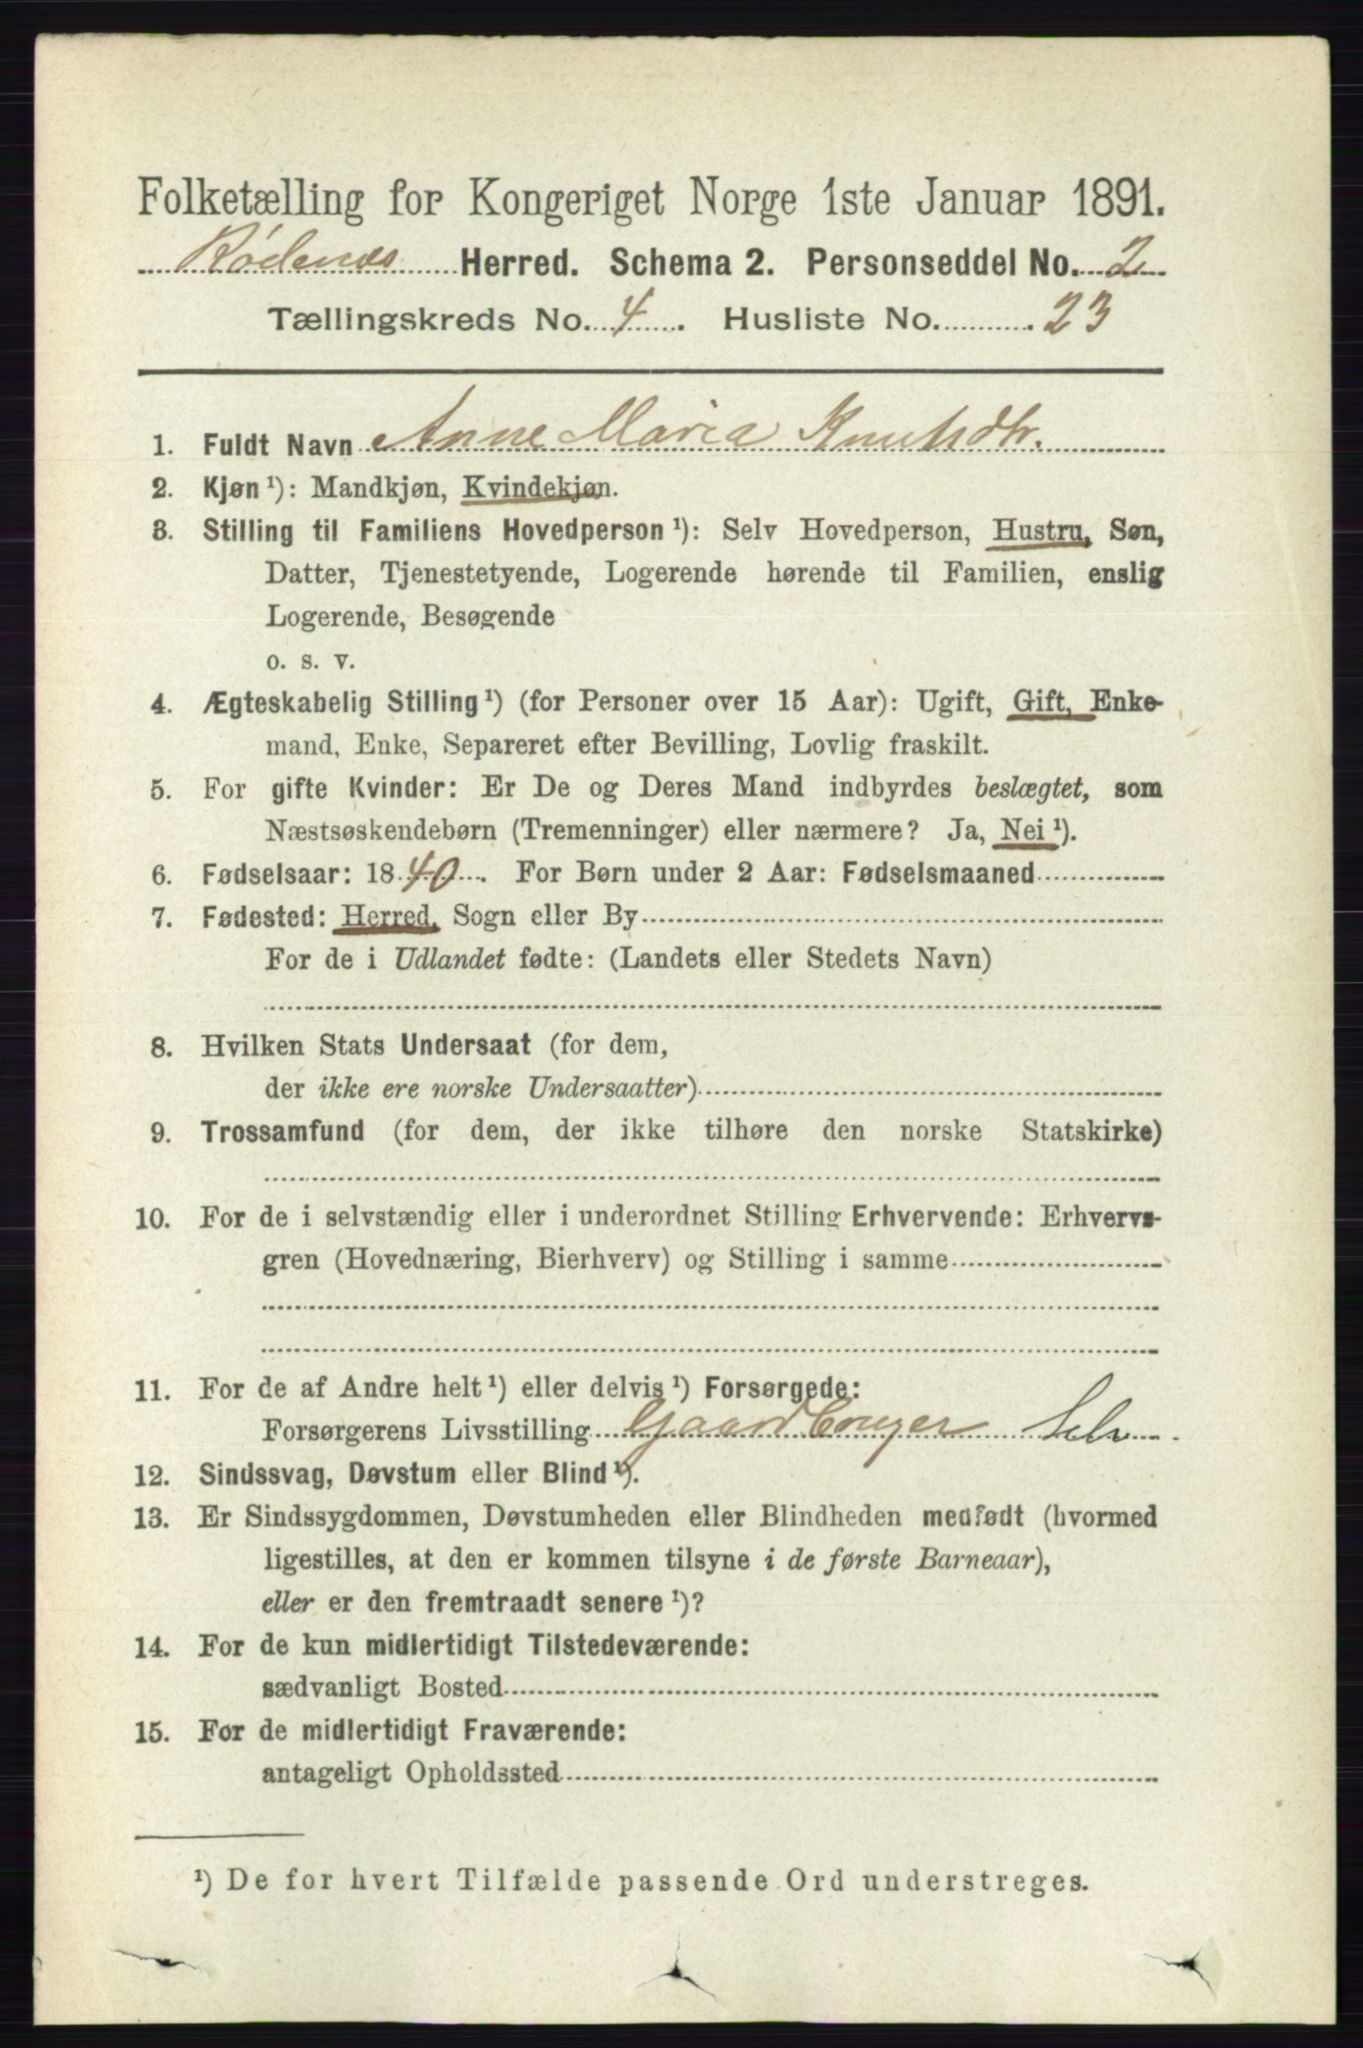 Folketælling for Kongeriget Norge 1ste Januar 1891.
Rødenæs Herred. Schema 2. Personseddel No. 2
Tællingskreds No. 4. Husliste No. 23
1. Fuldt Navn Anne Maria Knutsdtr.
2. Kjøn ¹): Mandkjøn, Kvindekjøn.
3. Stilling til Familiens Hovedperson ¹): Selv Hovedperson, Hustru, Søn,
Datter, Tjenestetyende, Logerende hørende til Familien, enslig
Logerende, Besøgende
o. s. v.
4. Ægteskabelig Stilling ¹) (for Personer over 15 Aar): Ugift, Gift, Enke-
mand, Enke, Separeret efter Bevilling, Lovlig fraskilt.
5. For gifte Kvinder: Er De og Deres Mand indbyrdes beslægtet, som
Næstsøskendebørn (Tremenninger) eller nærmere? Ja, Nei ¹).
6. Fødselsaar: 1840. For Børn under 2 Aar: Fødselsmaaned
7. Fødested: Herred, Sogn eller By
For de i Udlandet fødte: (Landets eller Stedets Navn)
8. Hvilken Stats Undersaat (for dem,
der ikke ere norske Undersaatter)
9. Trossamfund (for dem, der ikke tilhøre den norske Statskirke)
10. For de i selvstændig eller i underordnet Stilling Erhvervende: Erhvervs-
gren (Hovednæring, Bierhverv) og Stilling i samme
11. For de af Andre helt ¹) eller delvis ¹) Forsørgede:
Forsørgerens Livsstilling Gaardbruger Selv
12. Sindssvag, Døvstum eller Blind ¹).
13. Er Sindssygdommen, Døvstumheden eller Blindheden medfødt (hvormed
ligestilles, at den er kommen tilsyne i de første Barneaar),
eller er den fremtraadt senere ¹)?
14. For de kun midlertidigt Tilstedeværende:
sædvanligt Bosted
15. For de midlertidigt Fraværende:
antageligt Opholdssted
¹) De for hvert Tilfælde passende Ord understreges.